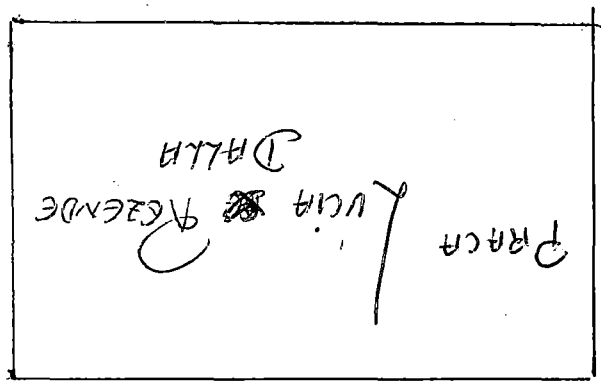 PRACA LUCIA REZENDE
DALLA